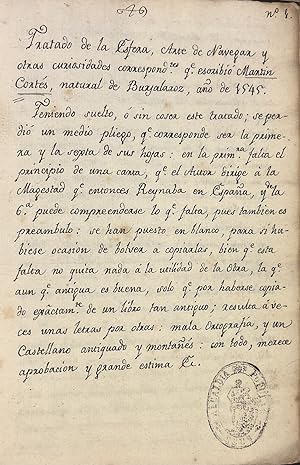 (46)
nº 4.
Tratado de la Esfera, Arte de Navegar y
otras curiosidades correspond.tes q.e escribió Martin
Cortés, natural de Burjalaroz, año de 1545.
Teniendo suelto, ó sin coser este tratado; se per-
dió un medio pliego, q.e corresponde ser la prime-
ra y la sexta de sus hojas: en la prim.ra falta el
principio de una carta, q.e el Autor dirige à la
Magestad q.e entonces Reynaba en España, y de la
6.a puede comprenderse lo q.e falta, pues tambien es
preambulo: se han puesto en blanco, para si hu-
biese ocasion de bolver à copiarlas, bién q.e esta
falta no quita nada á la utilidad de la Obra, la q.e
aun q.e antigua es buena, solo q.e por haberse copia-
do exactam.te de un libro tan antiguo; resulta á ve-
ces unas letras por otras: mala Ortografia, y un
Castellano antiquado y montañés: con todo, merece
aprobacion y grande estima &c.